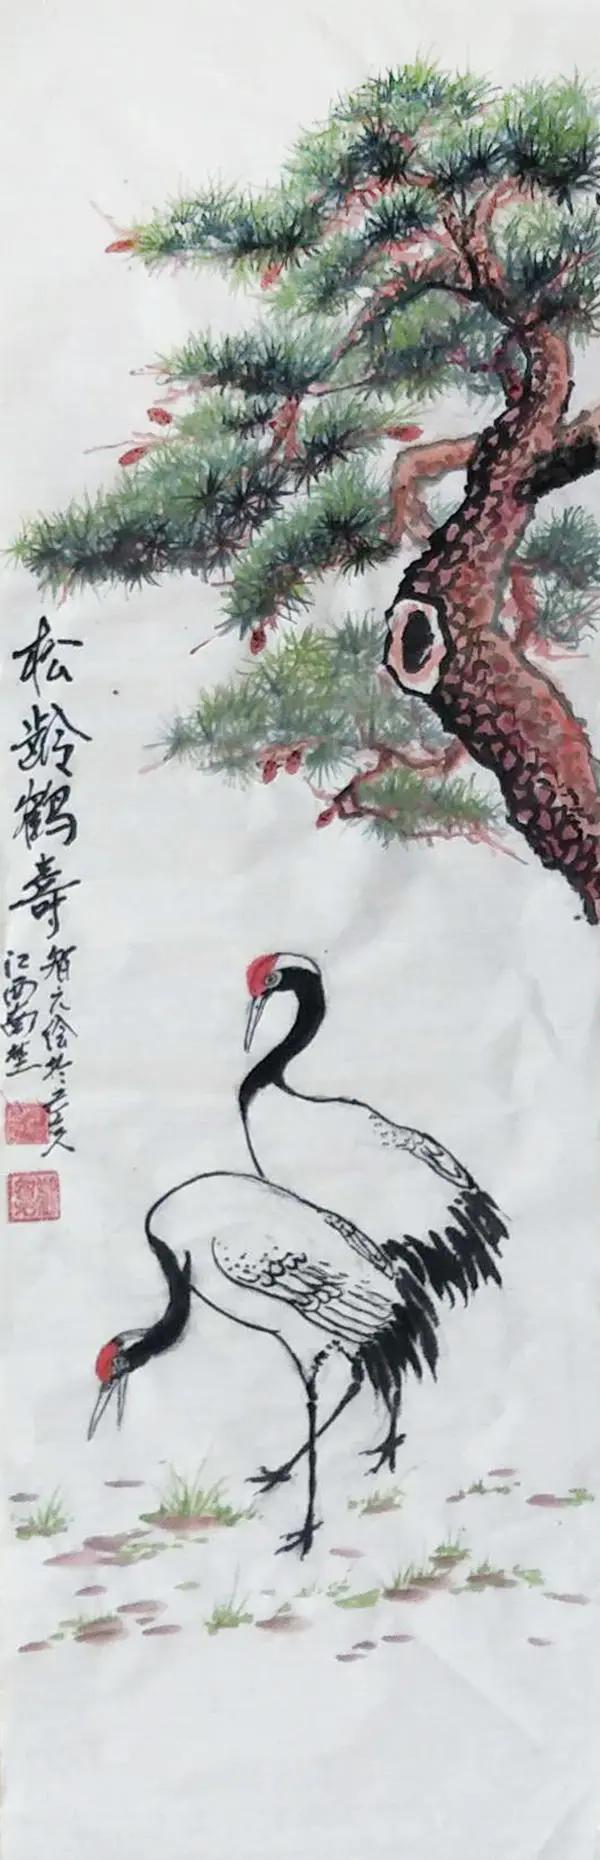 松龄鹤寿
智元绘於
江西南